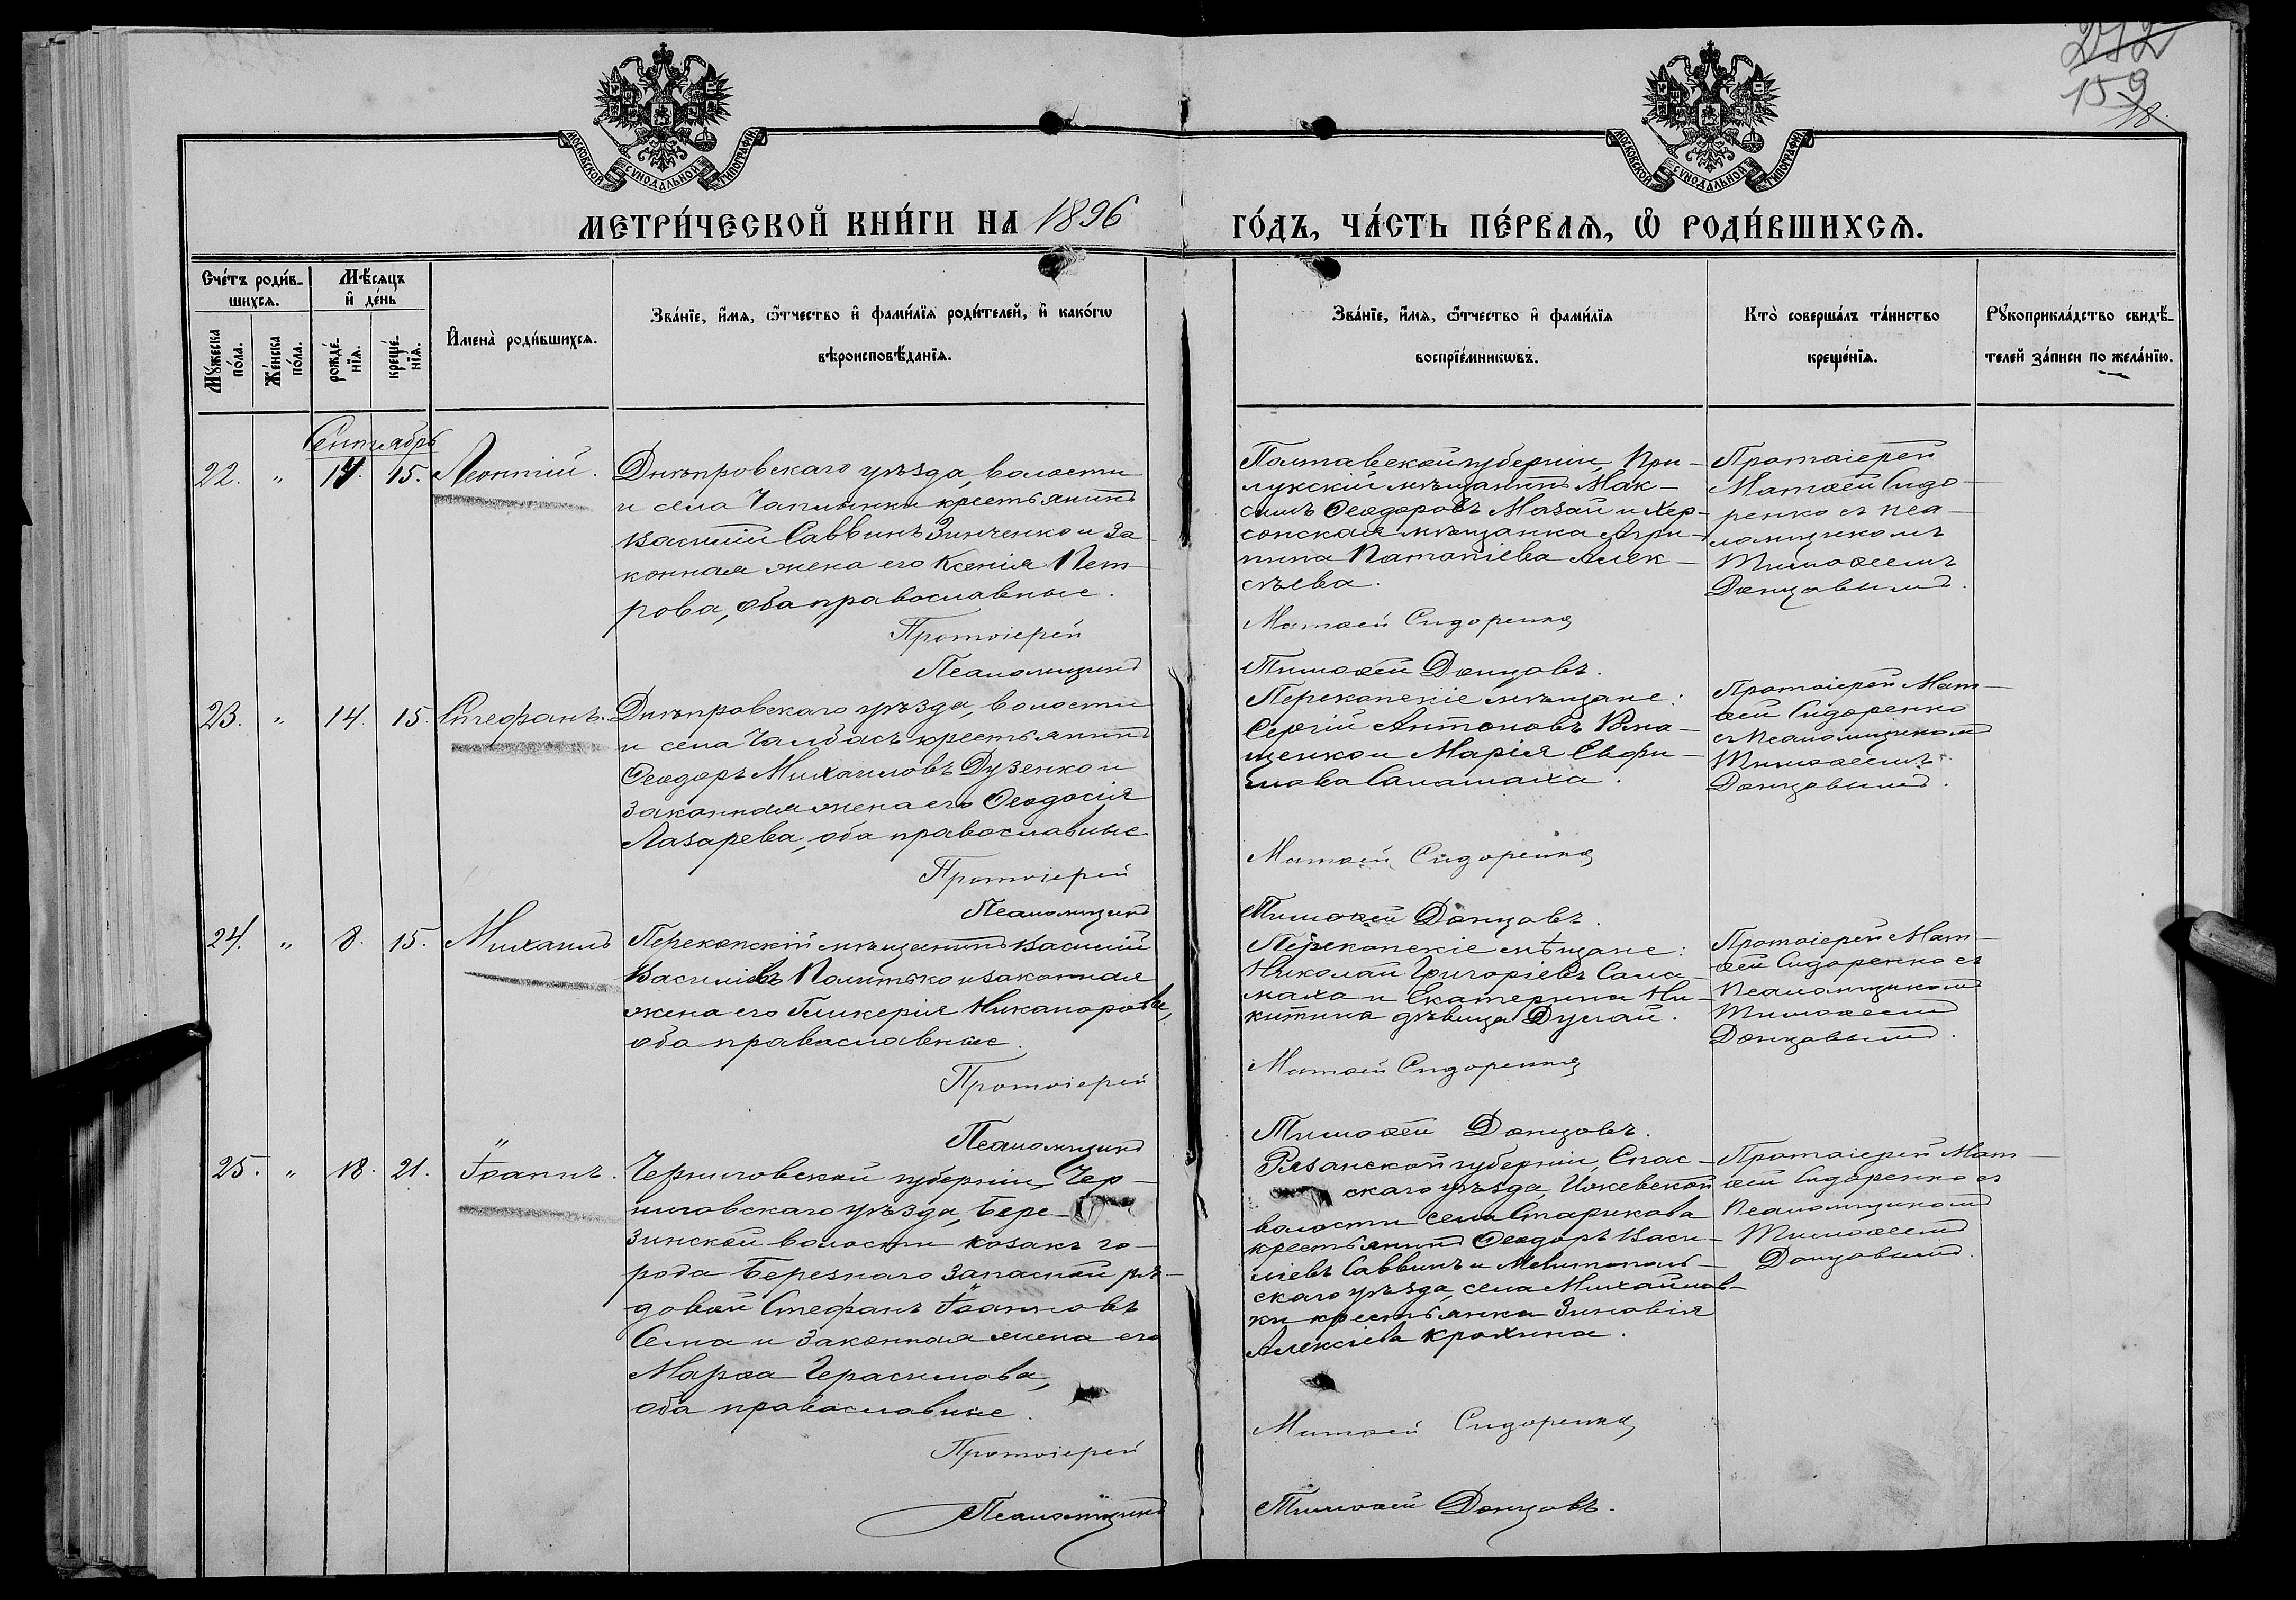 272
159
18
МОСКОВСКОЙ СѴНОДАЛЬНОЙ ТИПОГРАФІИ
МОСКОВСКОЙ СѴНОДАЛЬНОЙ ТИПОГРАФІИ
МЕТРИ́ЧЕСКОЙ КНИ́ГИ НА 1896 ГО́ДЪ, ЧА́СТЬ ПЕ́РВАЯ, Ѡ РОДИ́ВШИХСЯ.
Сче́тъ роди́в-
шихся.
Мѣ́сяцъ
и҆ де́нь
Мꙋ́жеска
по́ла.
Же́нска
по́ла.
рожде́-
нїя.
креще́-
нїя.
И҆мена̀ роди́вшихся.
Зва́нїе, и҆́мя, ѻ҆́тчество и҆ фами́лїя роди́телей, и҆ како́гѡ
вѣроисповѣ́данїя.
Зва́нїе, и҆́мя, ѻ҆́тчество и҆ фами́лїя
воспрїе́мникѡвъ.
Кто̀ соверша́лъ та́инство
креще́нїя.
Рꙋкоприкла́дство свидѣ́-
телей за́писи по жела́нїю.
Сентябрь
22. " 14. 15. Леонтій.
Днѣпровскаго уѣзда, волости
и села Чаплынки крестьянинъ
Василій Саввинъ Зинченко и за-
конная жена его Ксенія Пет-
рова, оба православные.
Протоіерей
Псаломщикъ
Полтавской губерніи, При-
лукскій мѣщанинъ Мак-
симъ Ѳеодоровъ Мазай и Хер-
сонская мѣщанка Агри-
пина Патапіева Алек-
сѣева.
Матѳей Сидоренко
Тимоѳей Донцовъ.
Протоіерей
Матѳей Сидо-
ренко съ пса-
ломщикомъ
Тимоѳеемъ
Донцовымъ.
23. " 14. 15. Стефанъ.
Днѣпровскаго уѣзда, волости
и села Чалбасъ крестьянинъ
Ѳеодоръ Михаиловъ Дузенко и
законная жена его Ѳеодосія
Лазарева, оба православные
Протоіерей
Псаломщикъ
Перекопскіе мѣщане:
Сергій Антоновъ
щенко и Марія Евфи-
мова Саламаха.
Матѳей Сидоренко
Тимоѳей Донцовъ.
Протоіерей Мат-
ѳей Сидоренко
съ Псаломщикомъ
Тимоѳеемъ
Донцовымъ.
24. " 8. 15. Михаилъ
Перекопскій мѣщанинъ Василій
Васильевъ Политько и законная
жена его Гликерія Никанорова,
оба православные.
Протоіерей
Псаломщикъ
Перекопскіе мѣщане:
Николай Григорьевъ Сала-
маха и Екатерина Ни-
китина дѣвица Дунай.
Матѳей Сидоренко
Тимоѳей Донцовъ.
Протоіерей Мат-
ѳей Сидоренко съ
Псаломщикомъ
Тимоѳеемъ
Донцовымъ.
25. " 18. 21. Іоаннъ.
Черниговской губерніи, Чер-
ниговскаго уѣзда, Бере-
зинской волости козакъ го-
рода Березнаго запасной ря-
довой Стефанъ Іоанновъ
Сема и законная жена его
Марѳа Герасимова,
оба православные.
Протоіерей
Псаломщикъ
Рязанской губерніи, Спас-
скаго уѣзда, Ижевской
волости села Старикова
крестьянинъ Ѳеодоръ Васи-
ліевъ Саввинъ и Мелитополь-
скаго уѣзда, села Михайлов-
ки крестьянка Зиновія
Алексіева Крохина.
Матѳей Сидоренко
Тимоѳей Донцовъ.
Протоіерей Мат-
ѳей Сидоренко съ
Псаломщикомъ
Тимоѳеемъ
Донцовымъ.